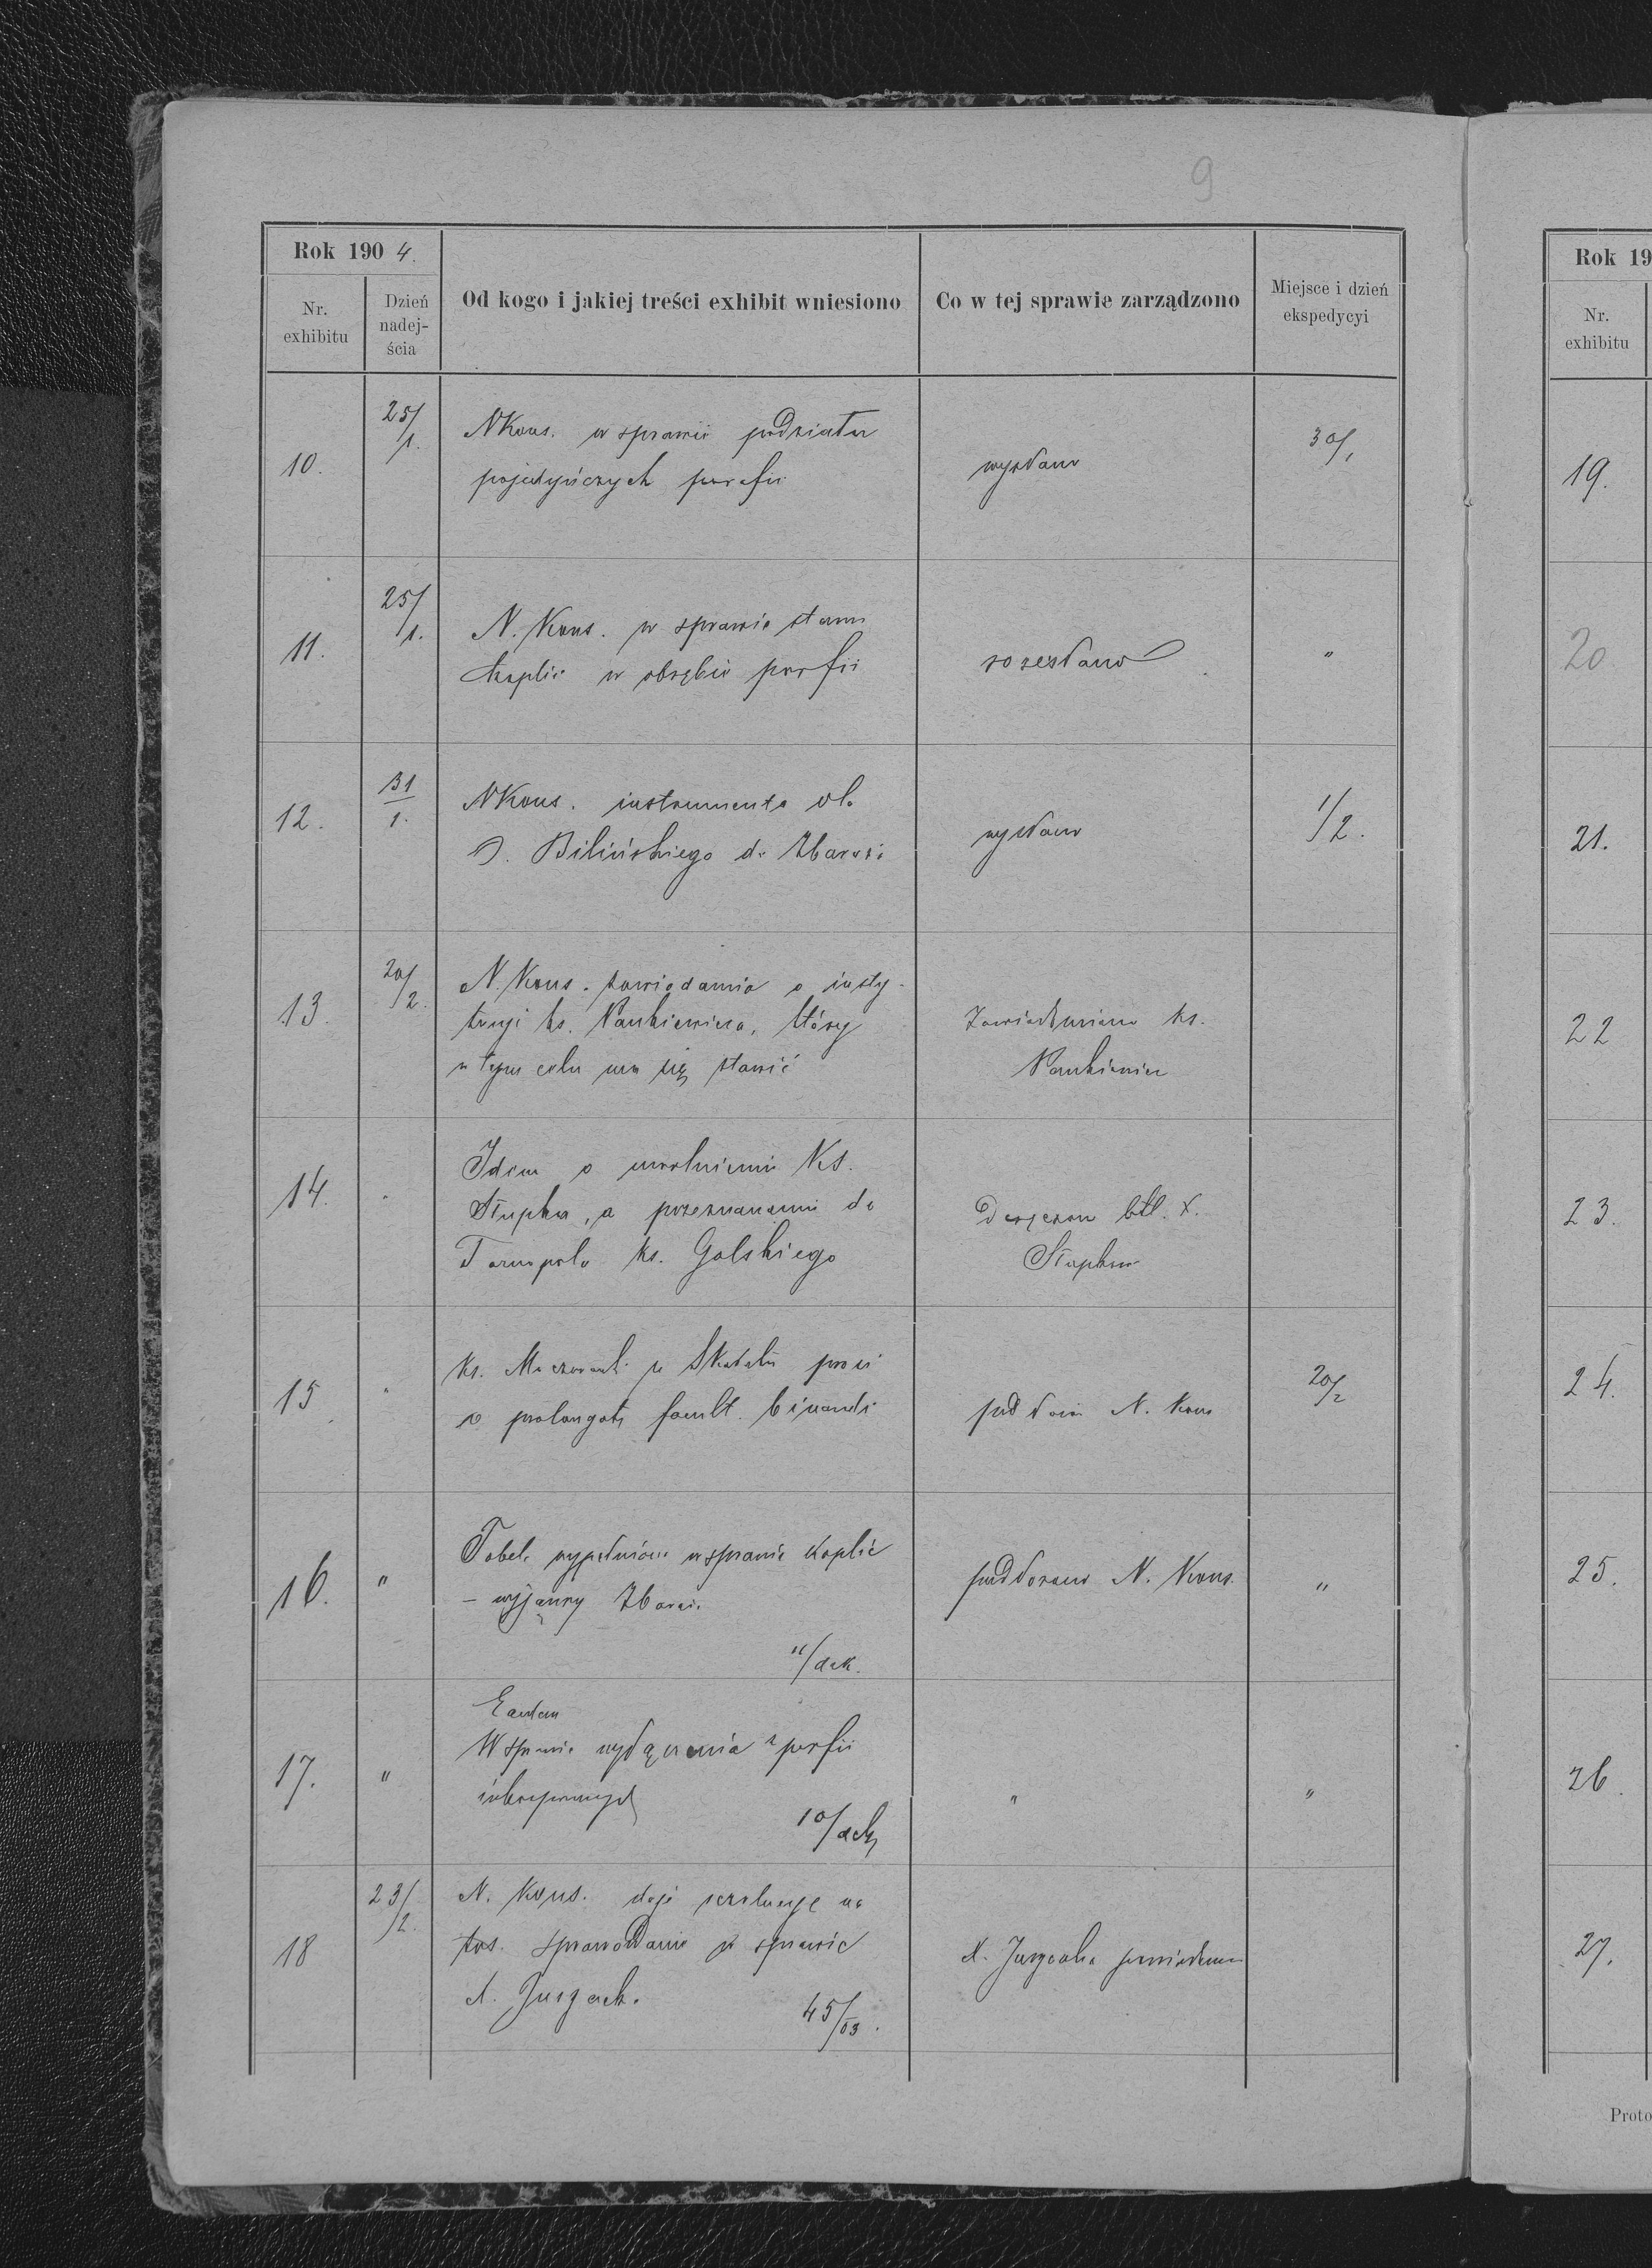 9
Rok 1904.
Nr. exhibitu
Dzień nadejścia
Od kogo i jakiej treści exhibit wniesiono
Co w tej sprawie zarządzono
Miejsce i dzień ekspedycyi
10.
25/1.
NKons. w sprawie podziału
pojedyńczych parafii
wysłano
30/1
11.
25/1.
N. Kons. w sprawie stanu
kaplic w obrębie parfii
rozesłano
"
12.
31/1.
NKons. instrumenta
Bilińskiego do Zbaraża
wysłano
1/2.
13.
20/2.
N. Kons. zawiadamia o insty-
tucyi ks. Pankiewicza, który
w tym celu ma się stawić
Zawiadomiono ks.
Pankiewicz
14.
"
Idem o uwolnieniu Ks.
Słupka, a przeznaczeniu do
Tarnopola ks. Golskiego
Doręczono X.
Słupkow
15
"
ks. w Skałacie prosi
o prolongatę facult. binandi
N. Kons
20/2
16.
"
Tabele wypełnione w sprawie kaplic
- wyjąwszy Zbaraż
11/dek.
N. Kons.
"
17.
"
Eandem
W sprawie wyłączenia z parfii
10/dek
"
"
18
23/2.
N. Kons. daje rezolucyę na
tus. sprawozdanie w sprawie
X.
45/03.
X.
Rok 19
Nr. exhibitu
19.
20.
21.
22
23.
24.
25.
26.
27.
Proto